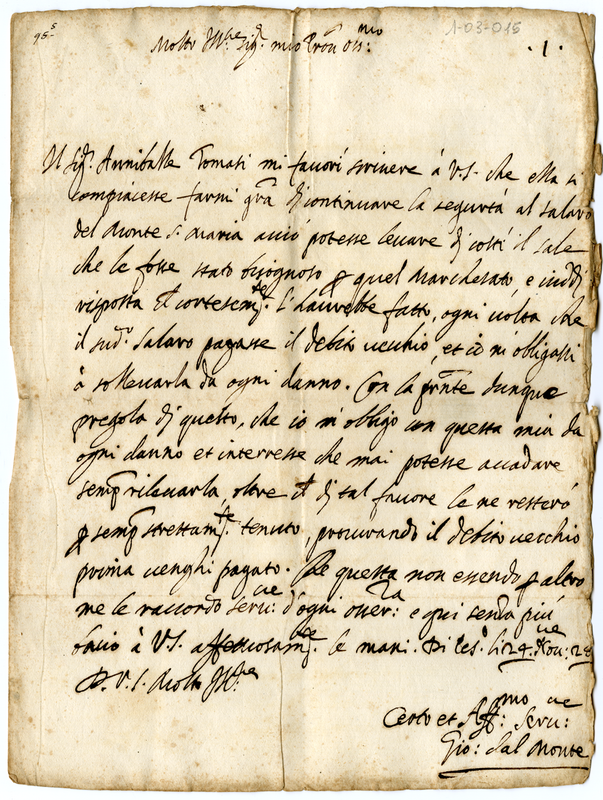 95.5
1-03-015
Molto Ill.re Sig.r mio Pron oss.mo
.1.
Il Sig.r Anniballe Tomati mi favorì scrivere à V.S. che ella si
compiacesse farmi gra di continuare la segurtà al salaro
del Monte S. Maria acciò potesse levare di costì il sale
che le fosse stato bisognoso p quel Marchesato, e
risposta cortesem.te l'haurebbe fatto, ogni volta che
il sud.o salaro pagasse il debito vecchio, et io mi obligassi
à sollevarla da ogni danno. Con la prnte dunque
pregola di questo, che io m'obligo con questa mia da
ogni danno et interresse che mai potesse accadare
semp rilevarla, oltre di tal favore le ne resterò
p semp strettam.te tenuto, procurando il debito vecchio
prima venghi pagato. Ne questa non essendo p altro
me le raccordo serv.re d'ogni osser.za e qui senza più
bacio à V.S. affettuosam.te le mani. Di li 24. Nov.
D. V. S. Molto Ill.re
Certo et Aff.mo Serv.re
Gio: dal Monte